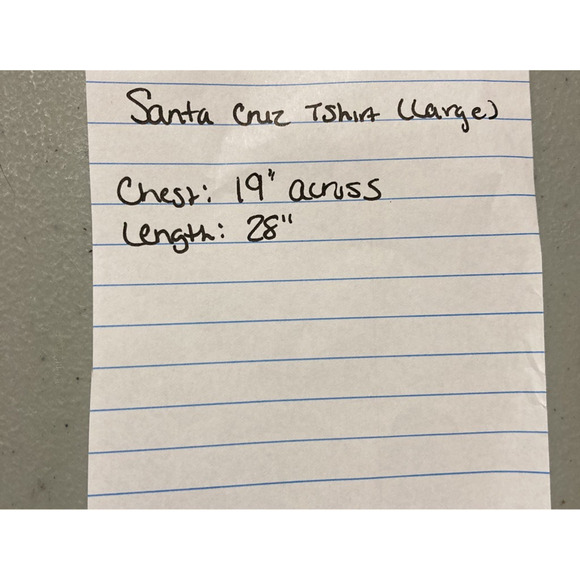 Santa Cruz Tshirt (Large)
Chest: 19" across
Length: 28"